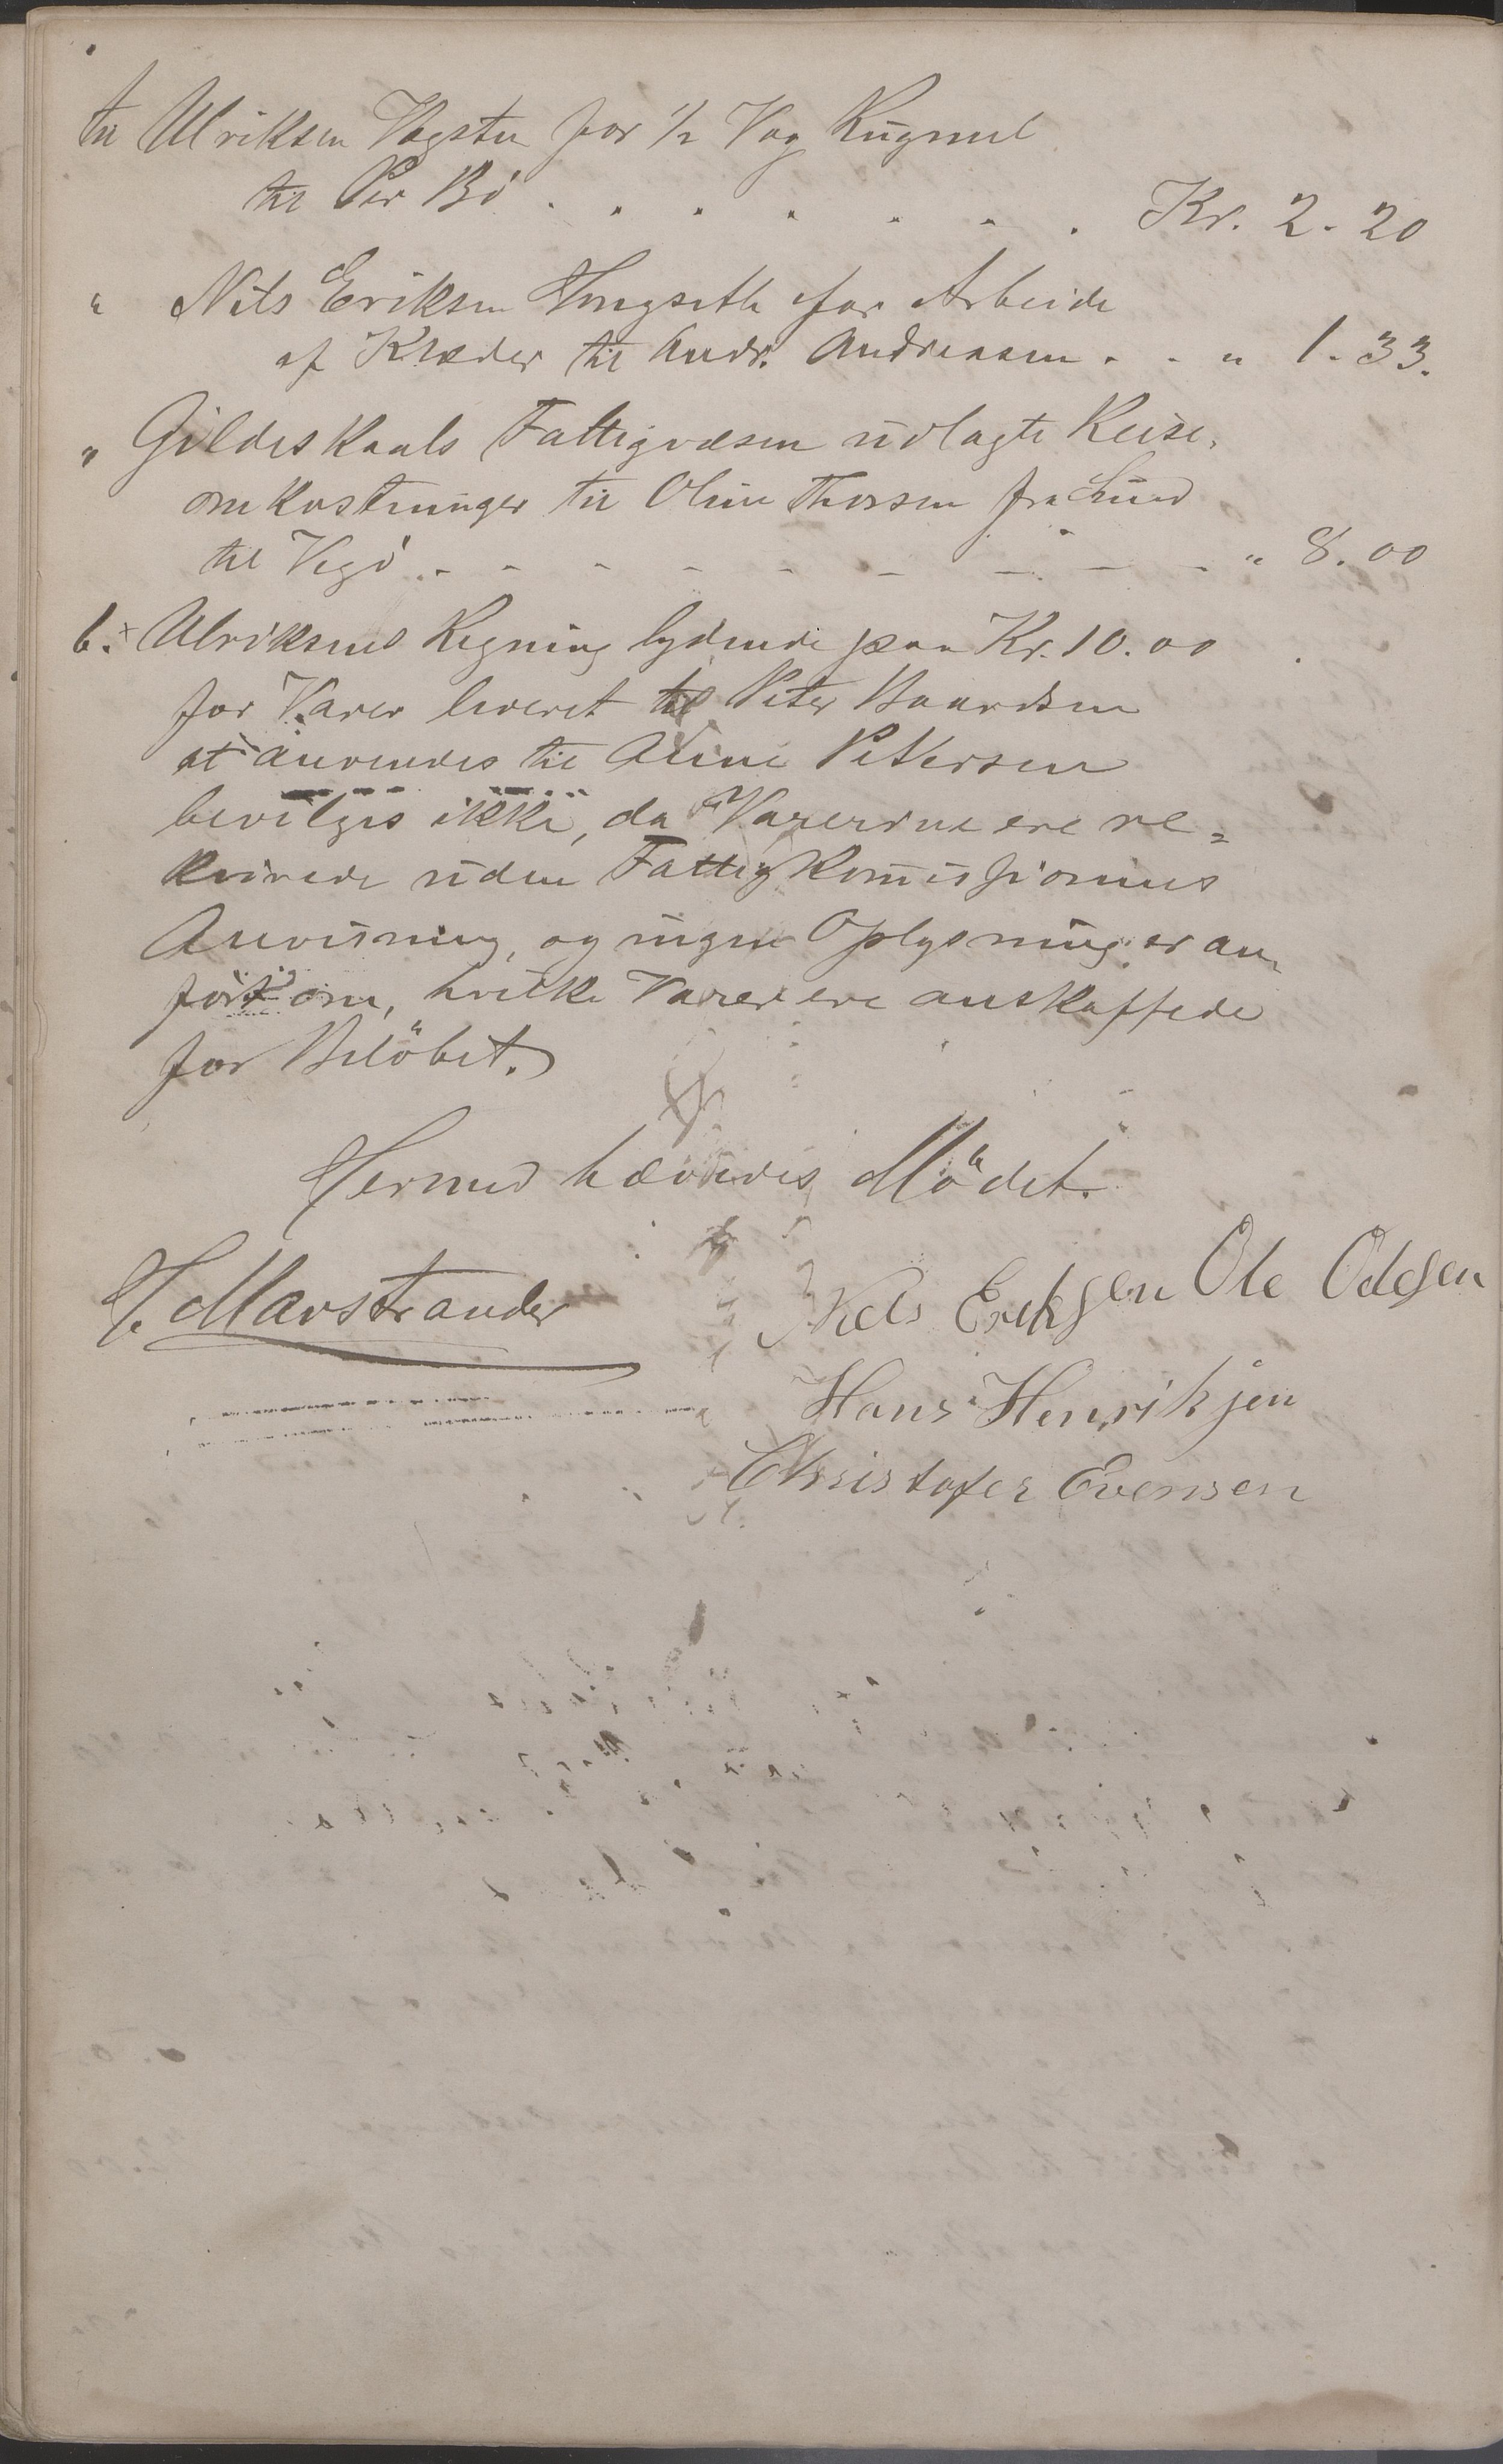 til Ulriksen Vagsten for 1/2 Vog Rugmel
til Per Bö . . . . . . . Kr. 2 - 20
" Nils Eriksen for Arbeide
af Klæder til Andr. Andreasen . . " 1 - 33.
" Gildeskaals Fattigvæsen udlagte Reise-
omkostninger til Oline Thorsen fra Lund
til Vegö . - - - - - - - - - " 8.00
6. Ulriksens Regning lydende paa Kr. 10.00
for Varer leveret til Peter Baardsen
at anvendes til Anne Petersen
bevilges ikke, da Varerne ere re=
kvirede uden Fattigkommissionens
Anvisning, og ingen Oplysning er an-
ført om, hvilke Varer ere anskaffede
for Belöbet.
Hermed hævedes Mödet.
Marstrander Niels Eriksen Ole Odesen
Hans Henriksen
Christofer Evensen